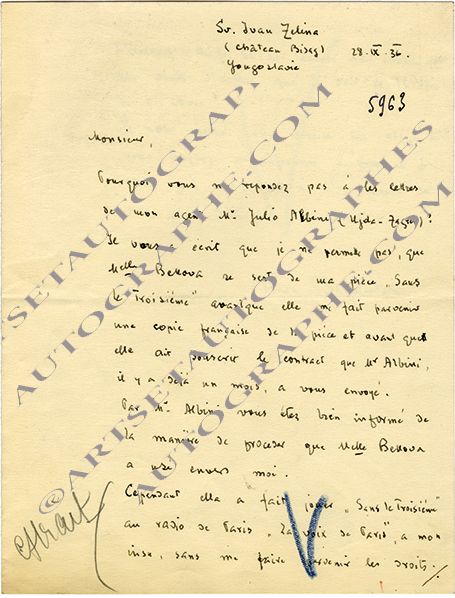 Sv. Ivan Zelina
(Château Bisag) 28-IX-36.
Yougoslavie
5963
Monsieur,
Pourquoi vous ne repondez pas à les lettres
de mon agent Mr Julio Albini (Hjda-Zagreb)?
Je vous a ecrit que je ne permette pas, que
Melle Bekova se sert de ma pièce „Sans
le Troisième" avantque elle me fait parvenir
une copie française de la pièce et avant que
elle ait souscrir le contract que Mr Albini,
il y a deja un mois, a vous envoyé.
Par Mr Albini vous étez bien informé de
la manière de proceder que Melle Bekova
a use envers moi.
Cependant ella a fait jouer „Sans le Troisième"
au radio de Paris „La voix de Paris", a mon
insu, sans me faire parvenir les droits.
©ARTSETAUTOGRAPHES.COM
AUTOGRAPHE.COM